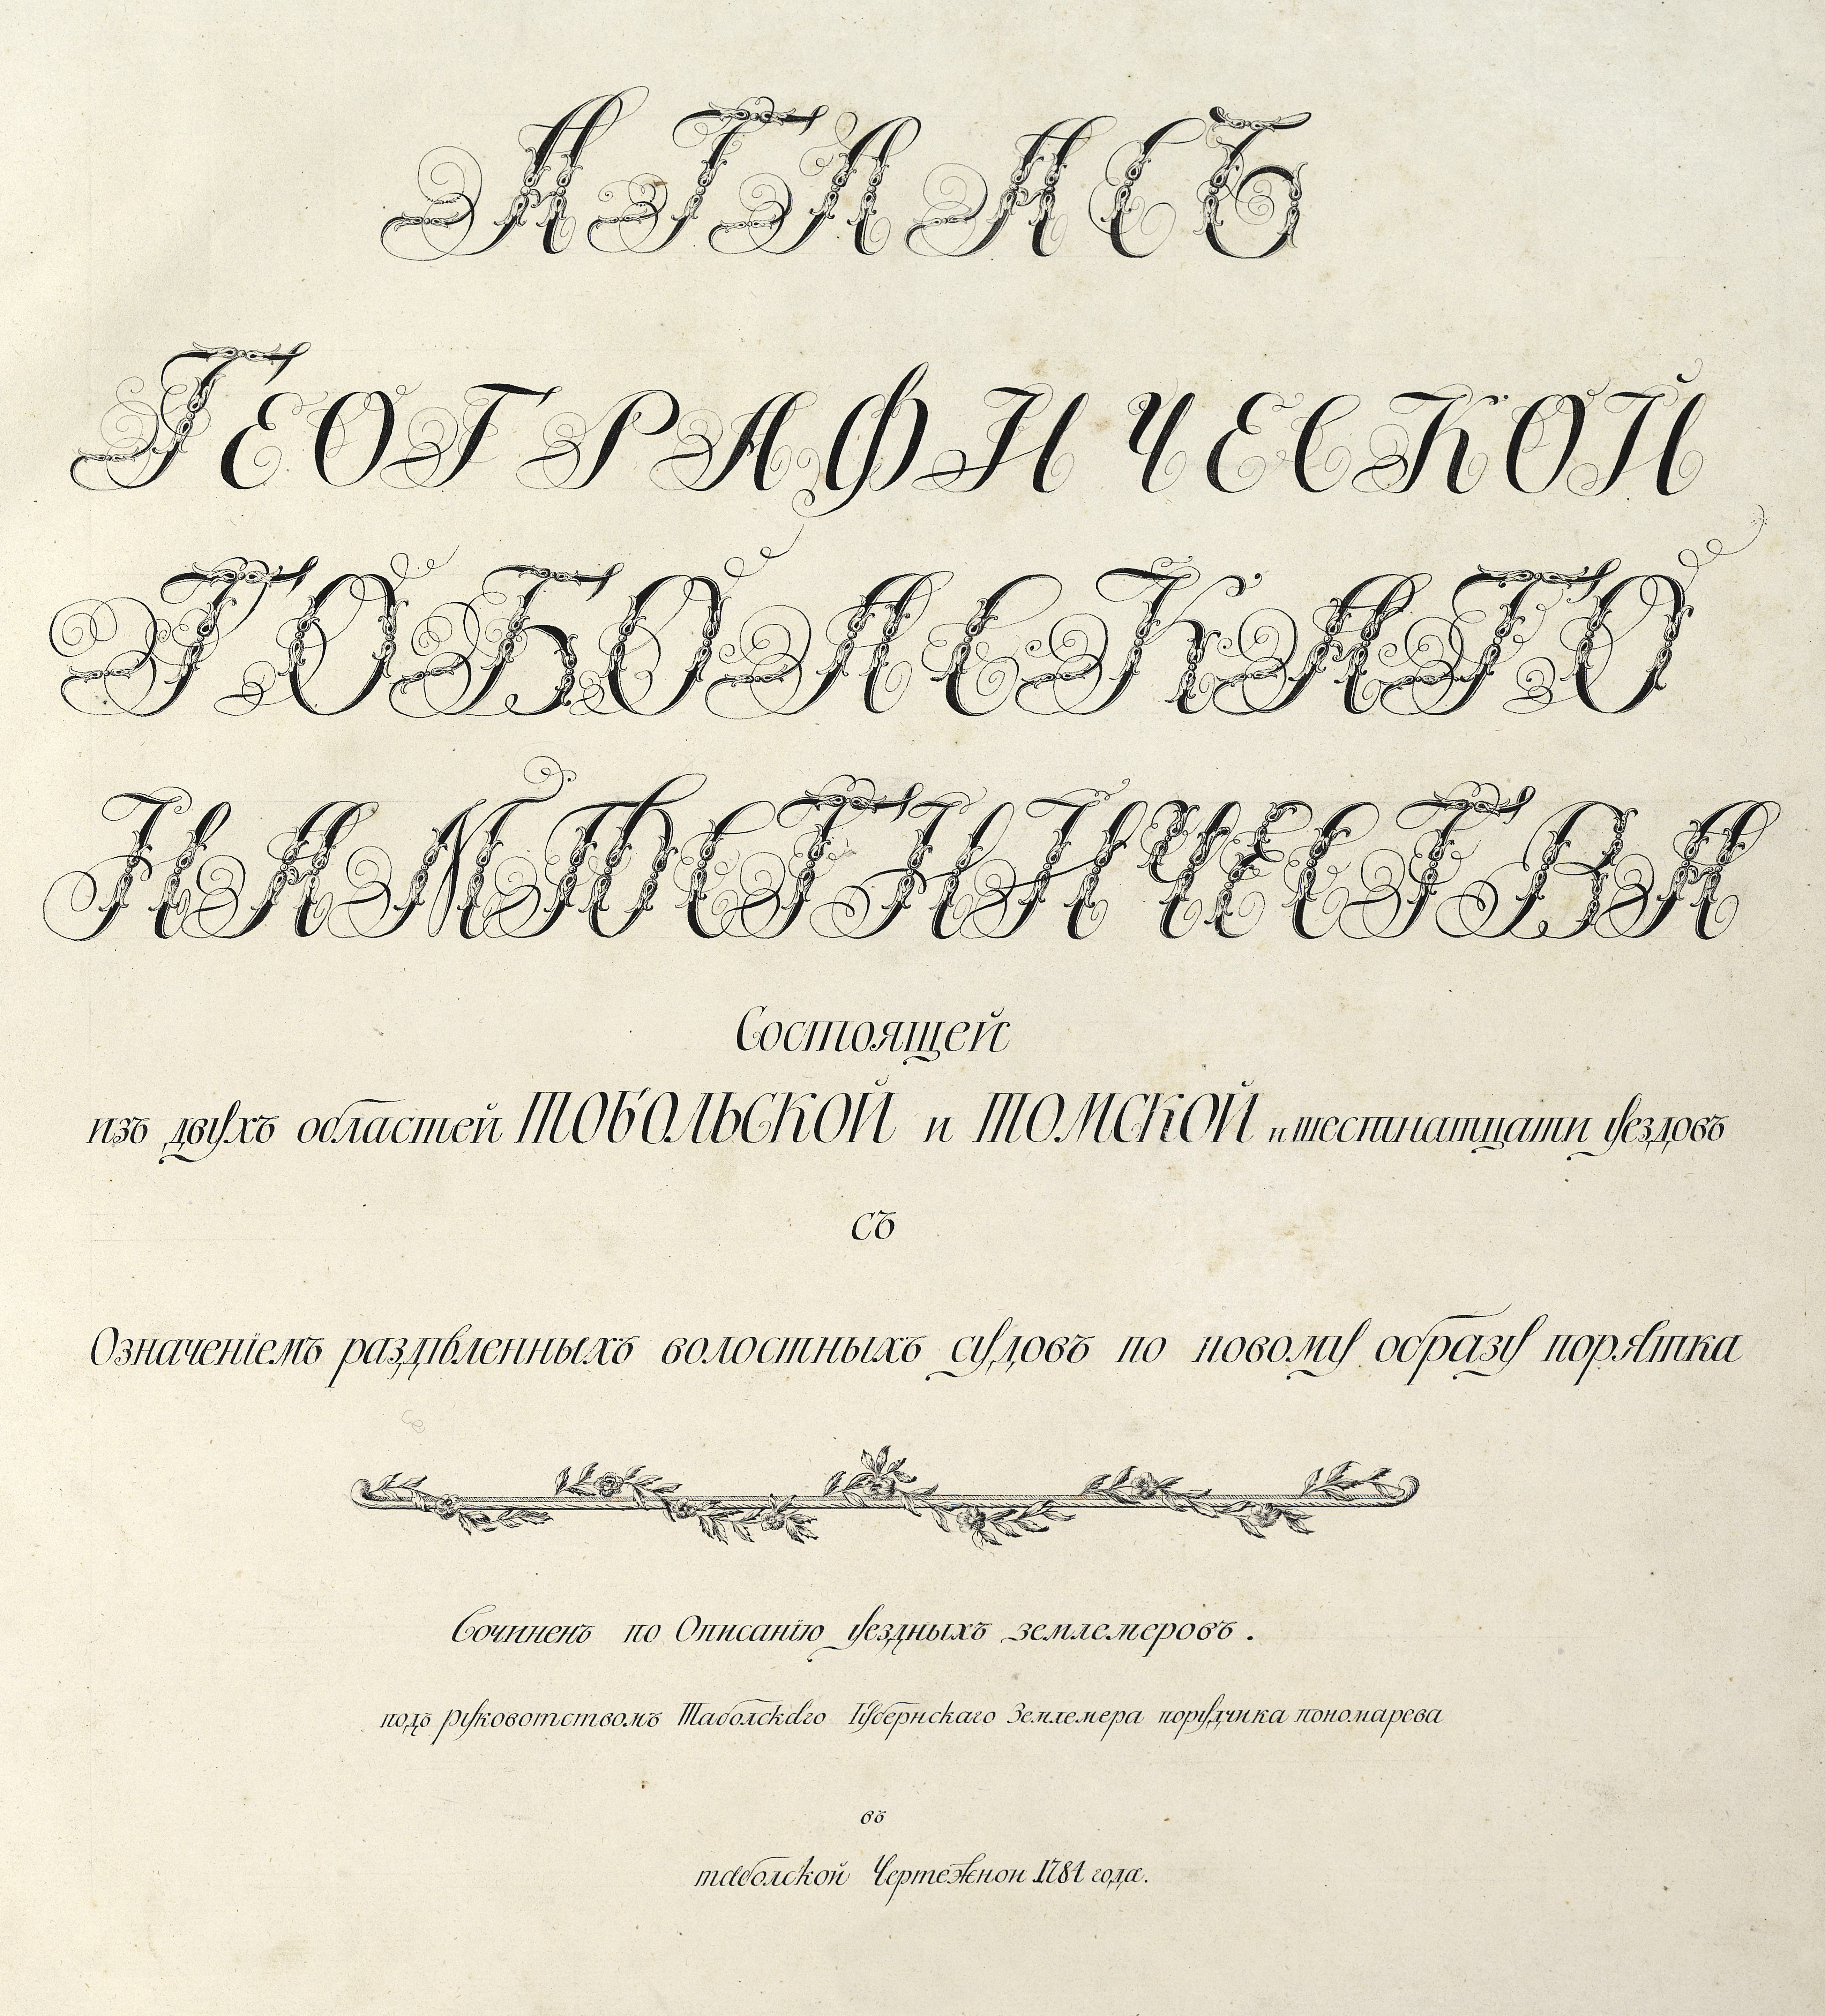 АТЛАСЪ
ГЕОГРАФИЧЕСКОЙ
ТОБОЛСКАГО
НАМѢСТНИЧЕСТВА
Состоящей
изъ двухъ областей ТОБОЛЬСКОЙ и ТОМСКОЙ и шестнатцати уездовъ
съ
Означеніемъ раздѣленныхъ волостныхъ судовъ по новому образу порятка
Сочиненъ по Описанію уездныхъ землемеровъ.
подъ руковотствомъ Таболскаго Губернскаго Землемера порудчика пономарева
въ
таболской Чертежнои 1784 года.